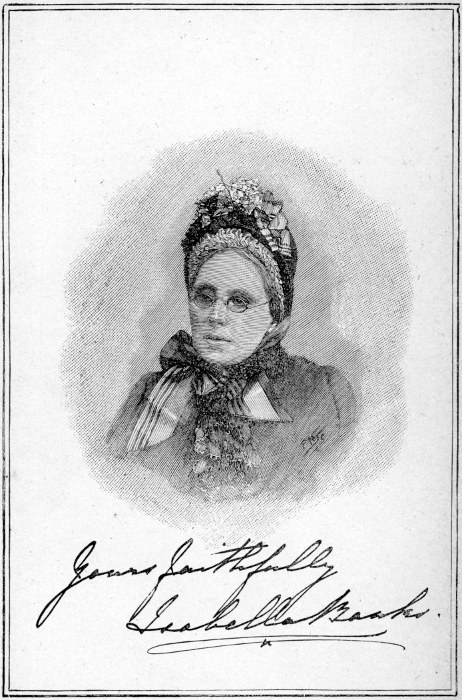 Yours faithfully
Isabella Banks.